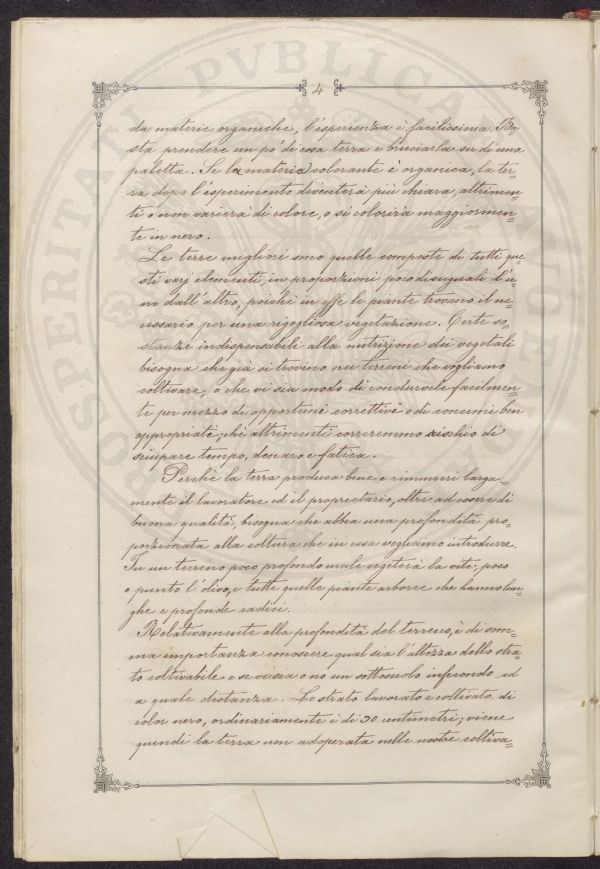 4
da materie organiche, l'esperienza è facilissima. Ba=
sta prendere un po' di essa terra e bruciarla su di una
paletta. Se la materia colorante è organica, la ter=
ra dopo l'esperimento diventerà più chiara, altrimen=
ti o non varierà di colore, o si colorirà maggiormen=
te in nero.
Le terre migliori sono quelle composte di tutti que=
sti varj elementi, in proporzioni poco disuguali l'u=
no dall'altro, poichè in esse le piante trovano il ne=
cessario per una rigogliosa vegetazione. Certe so=
stanze indispensabili alla nutrizione dei vegetali
bisogna che già si trovino nei terreni che vogliamo
coltivare, o che vi sia modo di condurvele facilmen=
te per mezzo di opportuni correttivi o di concimi ben
appropriati; chè altrimenti correremmo rischio di
sciupare tempo, denaro e fatica.
Perchè la terra produca bene e rimuneri larga=
mente il lavoratore ed il proprietario, oltre ad essere di
buona qualità, bisogna che abbia una profondità pro=
porzionata alla coltura che in essa vogliamo introdurre.
In un terreno poco profondo male vegeterà la vite, poco
o punto l'olivo, e tutte quelle piante arboree che hanno lun=
ghe e profonde radici.
Relativamente alla profondità del terreno, è di som=
ma importanza conoscere qual sia l'altezza dello stra=
to coltivabile e se vi sia o no un sottosuolo infecondo ed
a quale distanza. Lo strato lavorato e coltivato, di
color nero, ordinariamente è di 30 centimetri; viene
quindi la terra non adoperata nelle nostre coltiva=